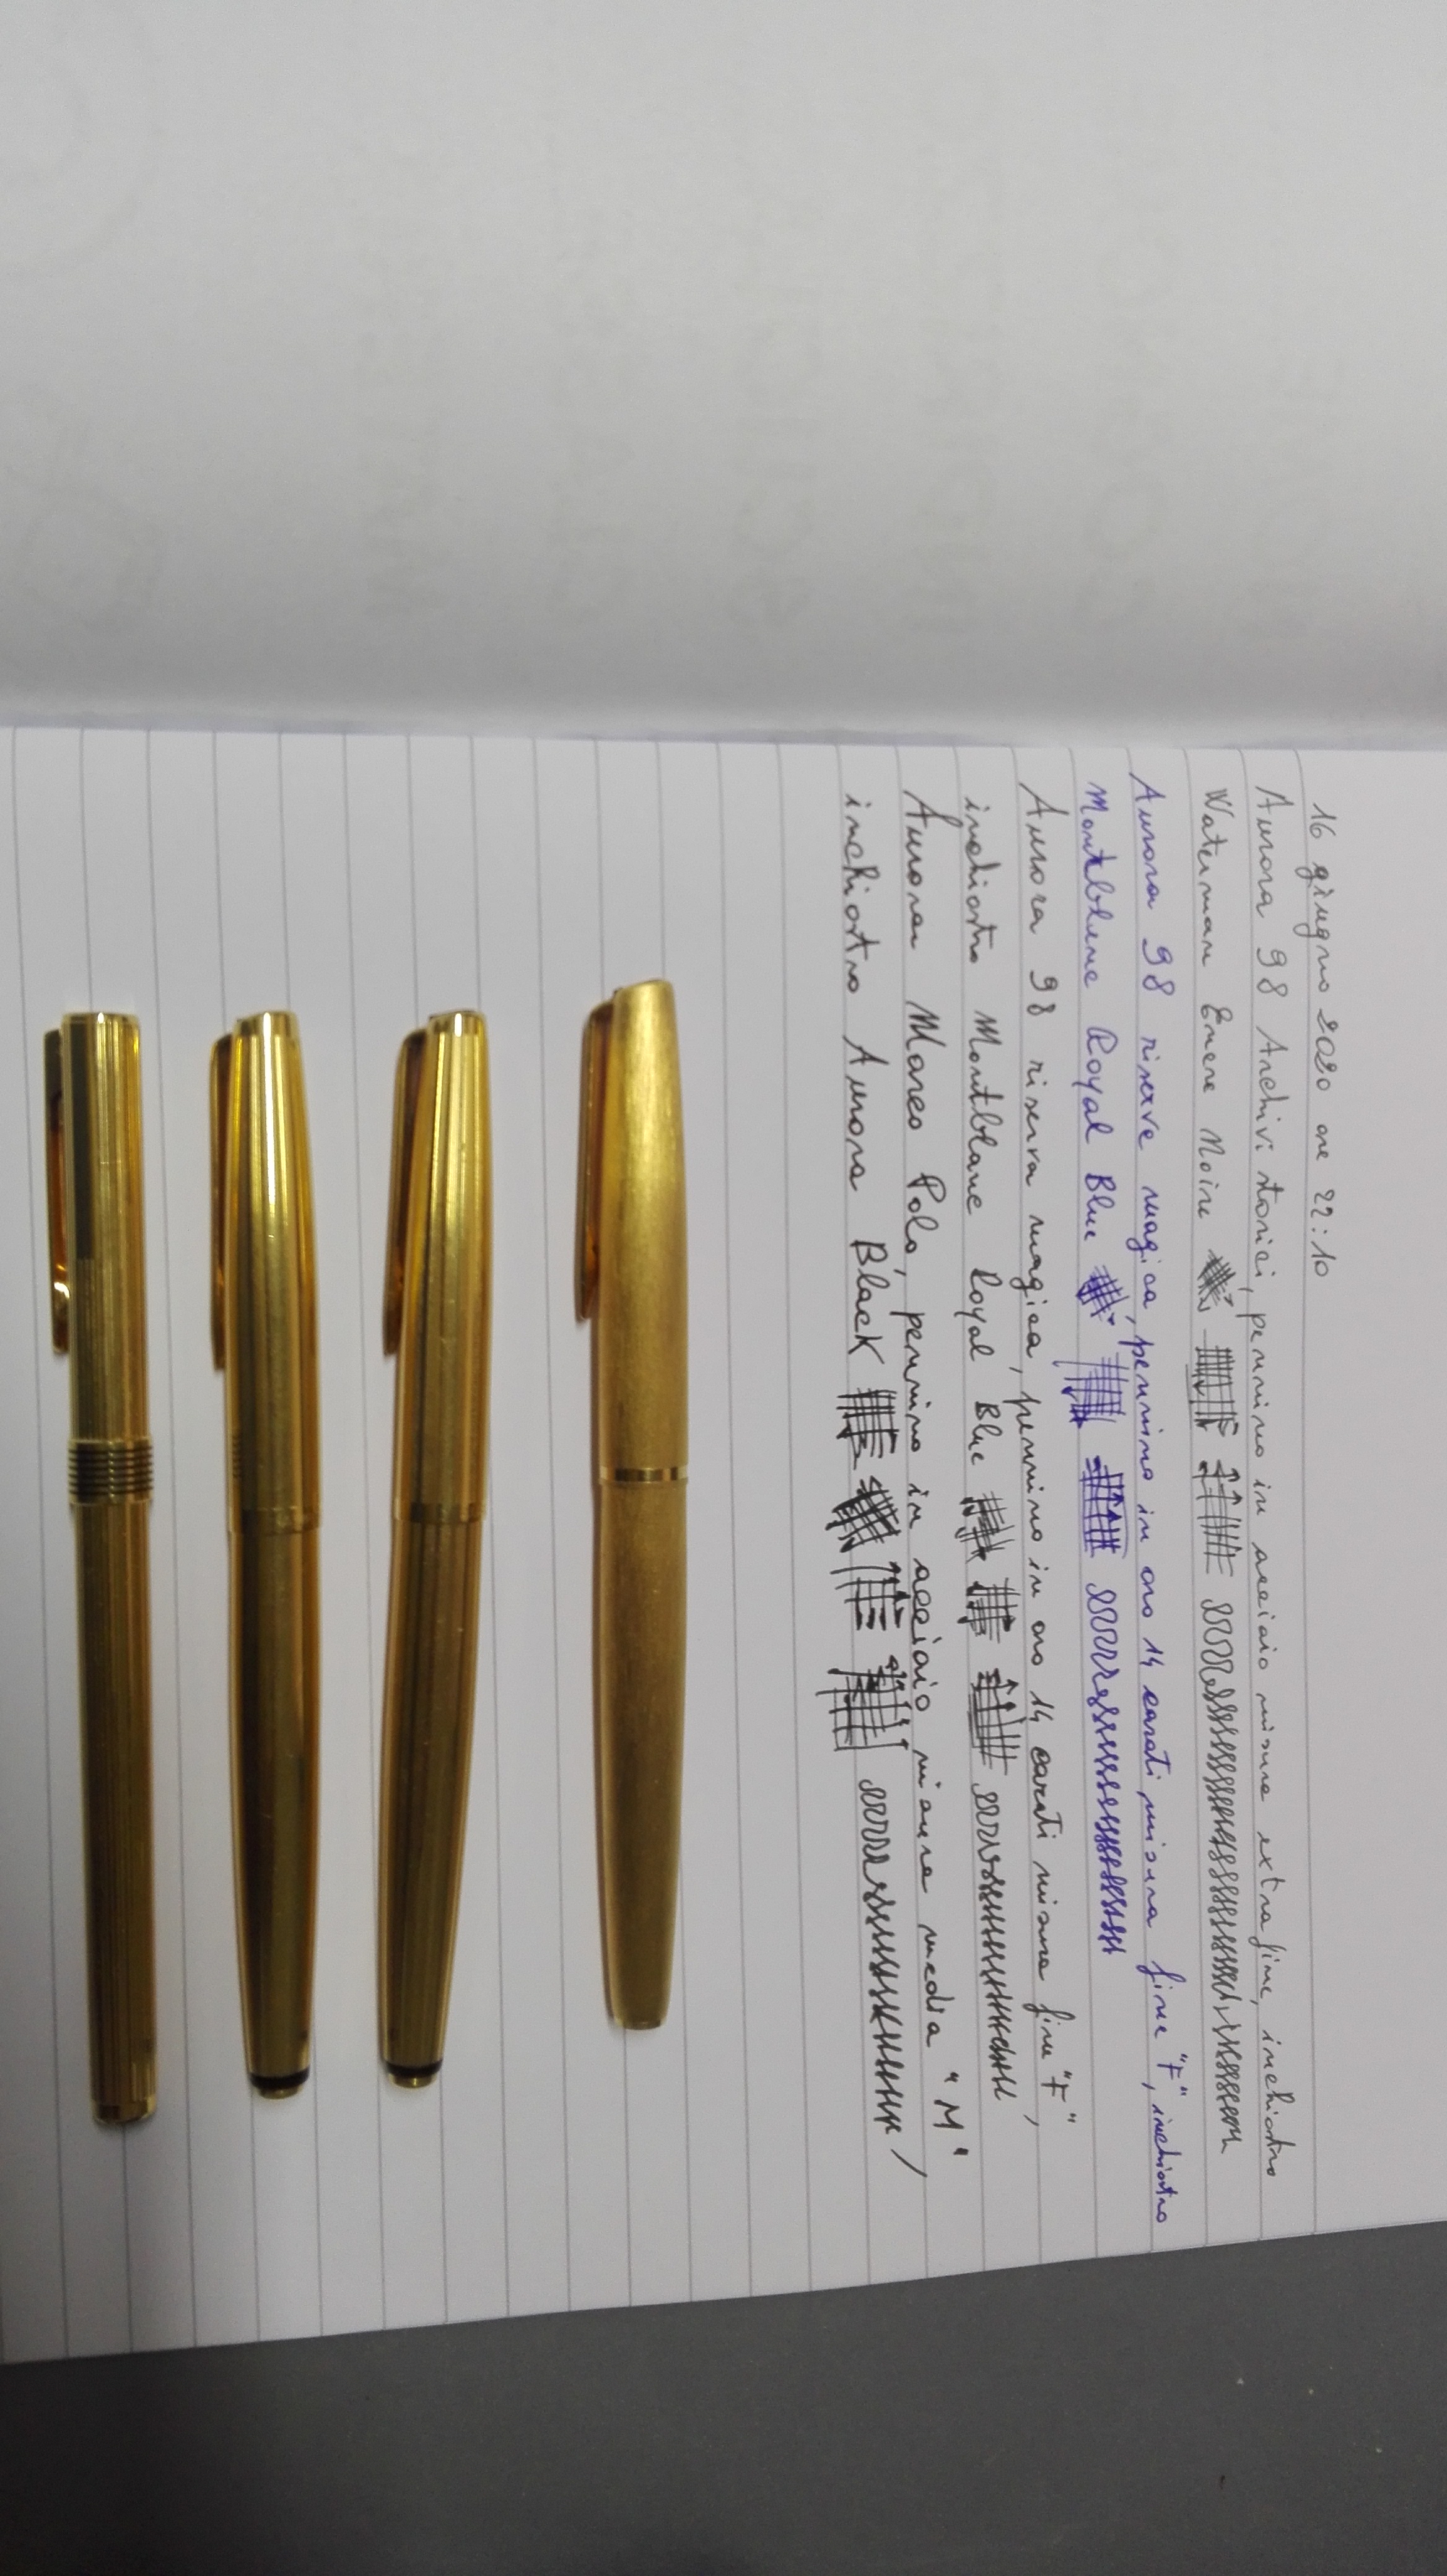 16 giugno 2020 ore 22:10
Aurora 98 Archivi storici, pennino in acciaio misura extra fine, inchiostro
Waterman Encre Noire
Aurora 98 riserva magica, pennino in oro 14 carati misura fine "F", inchiostro
Montblanc Royal Blue
Aurora 98 riserva magica, pennino in oro 14 carati misura fine "F",
inchiostro Montblanc Royal Blue
Aurora Marco Polo, pennino in acciaio misura media "M"
inchiostro Aurora Black